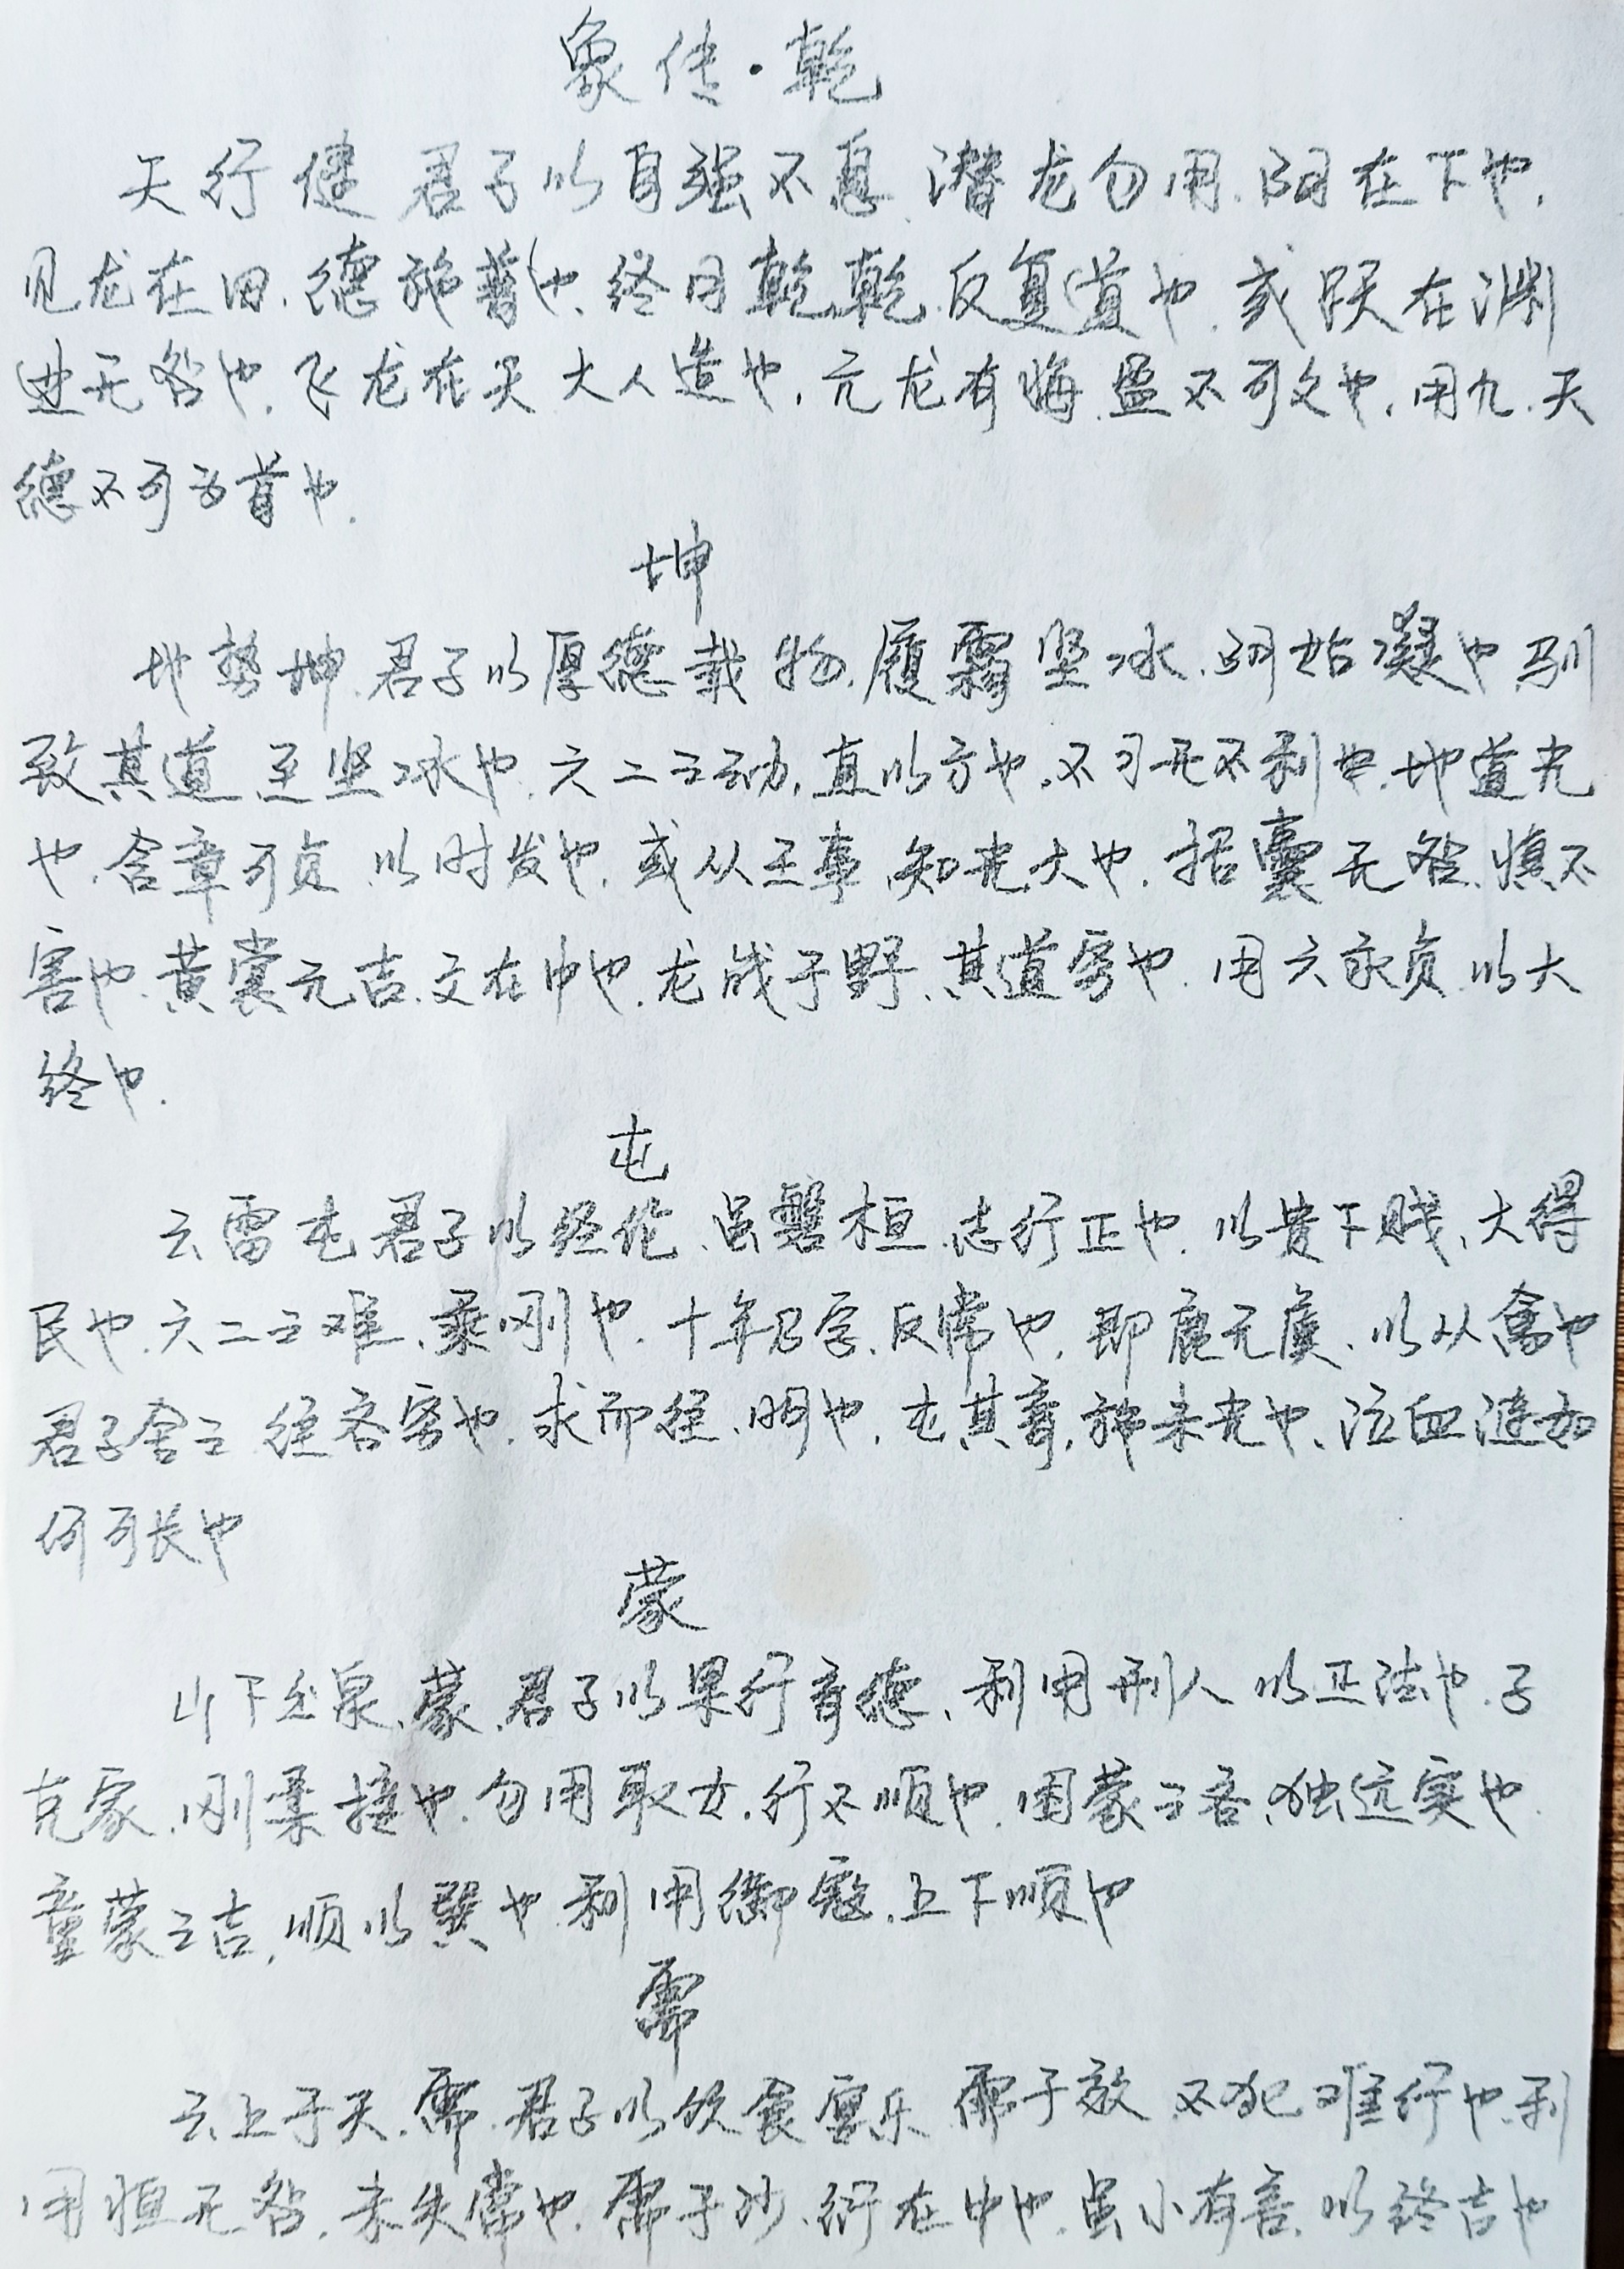 象传·乾
天行健君子以自强不息.潜龙勿用.阳在下也.
见龙在田.德施普也.终日乾乾.反复道也.或跃在渊
进无咎也.飞龙在天大人造也.亢龙有悔.盈不可久也.用九.天
德不可为首也.
坤
地势坤.君子以厚德载物.履霜坚冰.阴始凝也.驯
致其道至坚冰也.六二之动,直以方也.不习无不利也.地道光
也.含章可贞.以时发也.或从王事知光大也.括囊无咎.慎不
害也.黄裳元吉.文在中也.龙战于野.其道穷也.用六永贞.以大
终也.
屯
云雷屯君子以经伦.虽磐桓.志行正也.以贵下贱、大得
民也.六二之难、乘刚也.十年乃字.反常也.即鹿无虞、以从禽也
君子舍之往吝穷也.求而往、明也.屯其膏,施未光也、泣血涟如
何可长也
蒙
山下出泉、蒙.君子以果行育德、利用刑人以正法也.子
克家.刚柔接也.勿用取女.行不顺也.困蒙之吝、独远实也.
童蒙之吉,顺以巽也.利用御寇.上下顺也
需
云上于天.需.君子以饮食宴乐.需于郊不犯难行也.利
用恒无咎.未失常也.需于沙.衍在中也.虽小有言.以终吉也